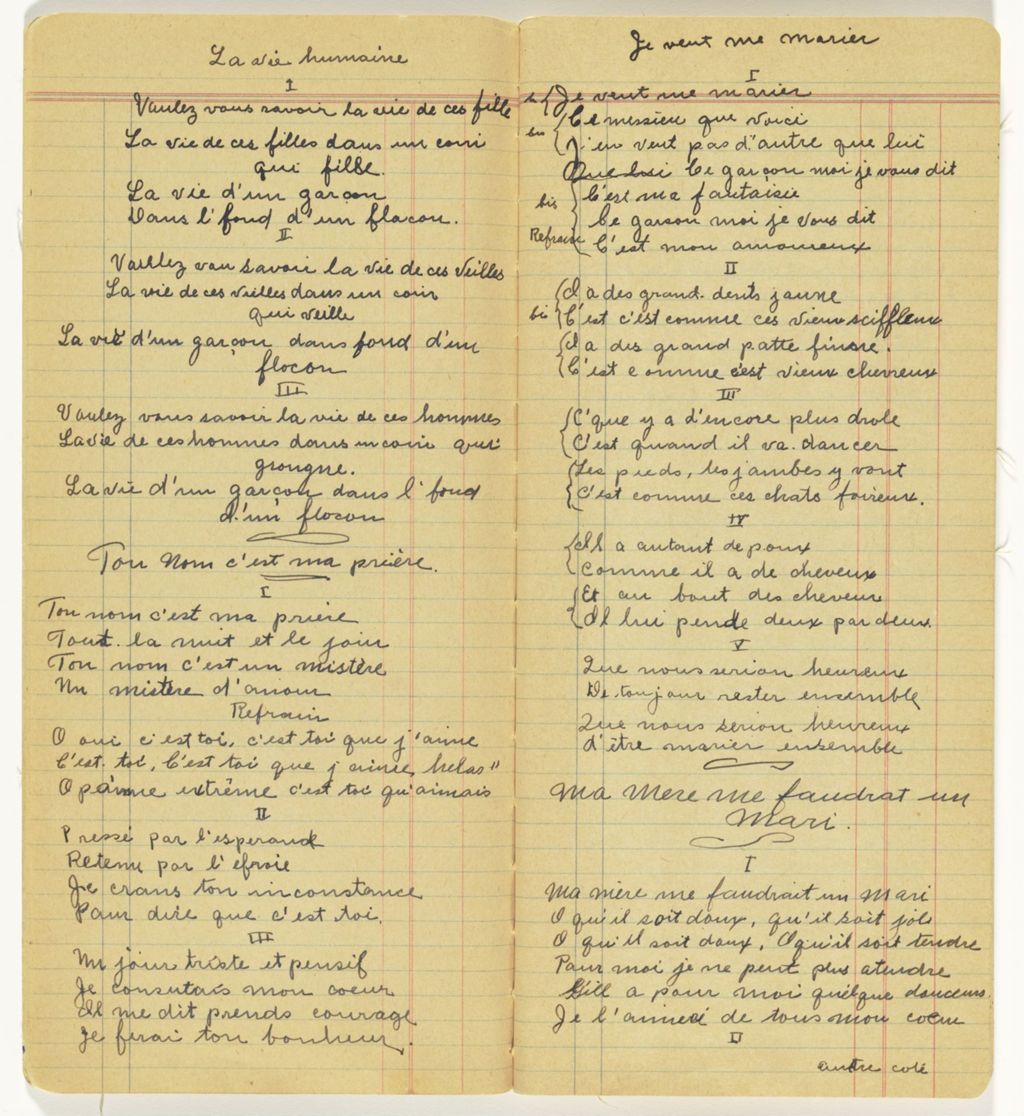 La vie humaine
I
Vaulez vous savoir la vie de ces fille
La vie de ces filles dans un coin
qui fille.
La vie d'un garçon
Dans l'fond d'un flacon.
II
Vaullez vou savoir la vie de ces Veilles
La vie de ces vieilles dans un coin
qui veille
La vie d'un garçon dans fond d'un
flocon
III
Voulez vous savoir la vie de ces hommes
La vie de ces hommes dans un coin qui
grongne.
La vie d'un garçon dans l'fond
d'un flocon
Ton Nom c'est ma prière.
I
Ton nom c'est ma prière
Tout la nuit et le jour
Ton nom c'est un mistère
Un mistère d'amour
Refrain
O oui c'est toi, c'est toi que j'aime
C'est toi, C'est toi que j'aime, helas"
O peinne extrême c'est toi qu'aimais
II
Pressé par l'esperance
Retenu par l'efroie
Je crans ton inconstance
Pour dire que c'est toi.
III
Un jour triste et pensif
Je consutais mon coeur
Il me dit prends courage
Je ferai ton bonheur.
Je veut me marier
I
bis Je veut me marier
bis Ce messieu que voici
J'en veut pas d'autre que lui
Ce garçon moi je vous dit
bis C'est ma fantaisie
Ce garson moi je vous dit
Refrain C'est mon amoureux
II
Il a des grand. dents jaune
bis C'est c'est comme ces vieux sciffleux
Il a des grand patte finne.
C'est comme c'est vieux chevreux
III
C'que y a d'encore plus drole
C'est quand il va. dancer
Les pieds, les jambes y vont
C'est comme ces chats foireux.
IV
Il a autant de poux
Comme il a de cheveux
Et au bout des cheveux
Il lui pende deux par deux.
V
Que nous serion heureux
De toujour rester ensemble
Que nous serion heureux
d'être marier ensemble
Ma Mere me faudrat un
Mari.
I
Ma mère me faudrait un Mari
O qu'il soit doux, qu'il soit joli
O qu'il soit doux, O qu'il soit tendre
Pour moi je ne peut plus atendre
Sill a pour moi quelque douceurs
Je l'aimerai de tous mon coeur
II
autre coté